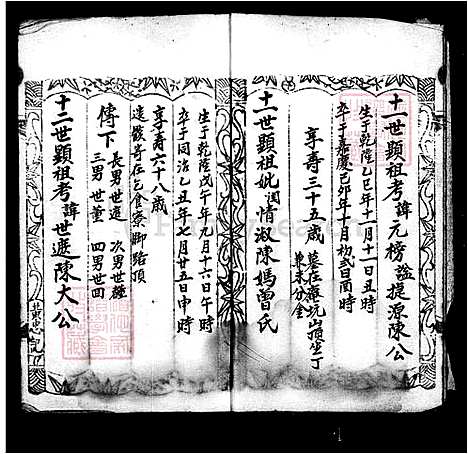 十一世顯祖考諱元榜謚提源陳公
生于乾隆乙巳年十一月十一日丑時
卒于嘉慶己卯年十月初弍日酉時
享壽三十五歲
墓在龍坑山頂坐丁
兼未分金
十一世顯祖妣閨情淑陳媽曾氏
生于乾隆戊午年元月十六日午時
卒于同治乙丑年七月廿五日申時
享壽六十八歲
遺骸寄在乞食寮脚路頂
傳下
長男世遮 次男世經
三男世童 四男世回
十二世顯祖考諱世遮陳大公